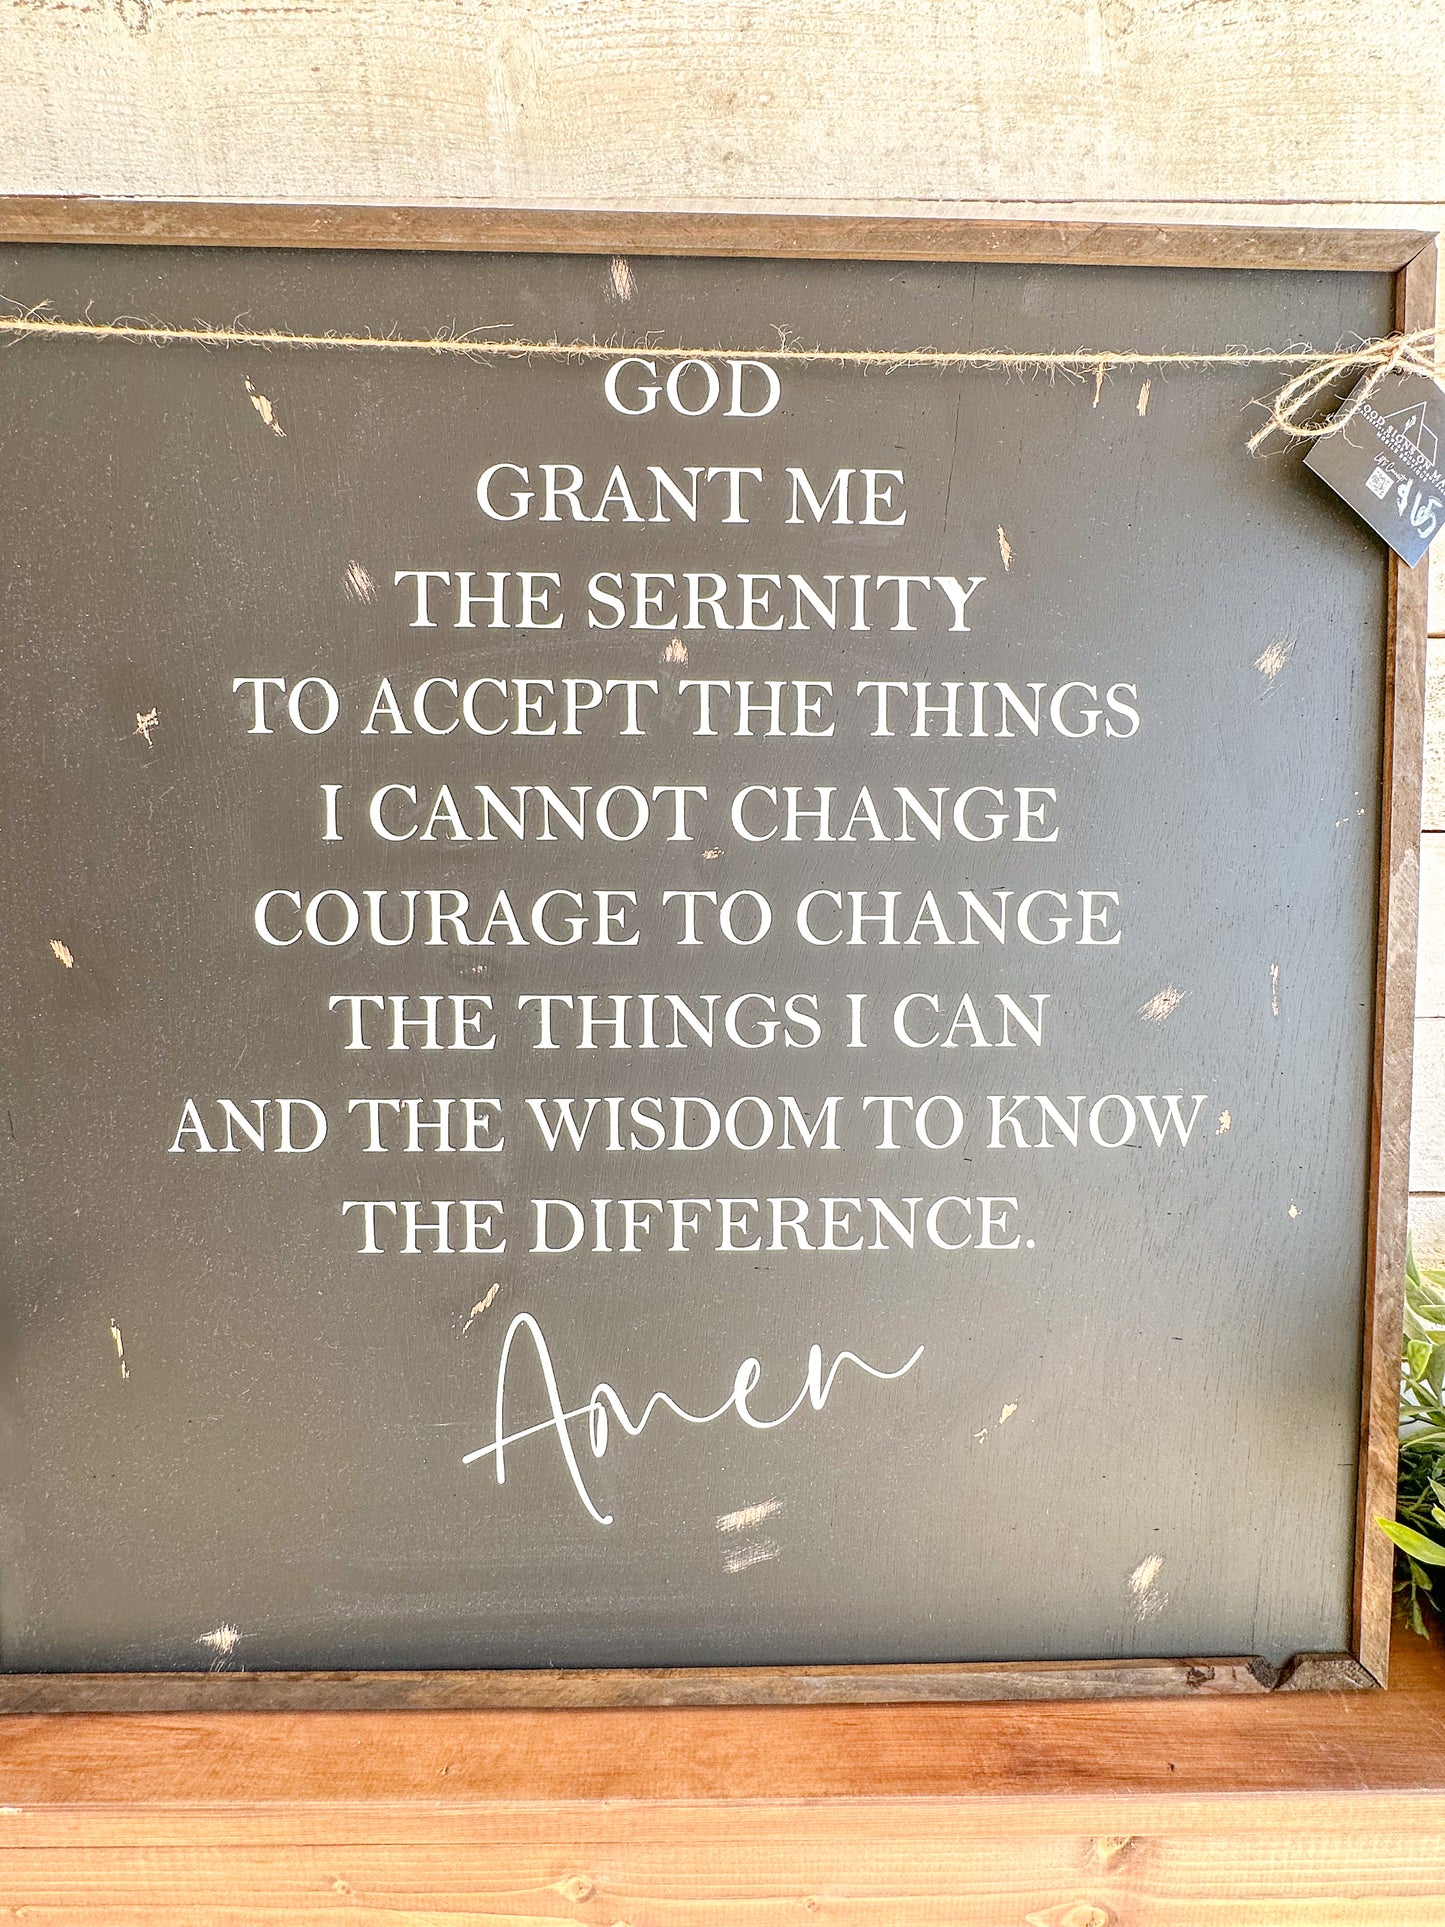 GOD
GRANT ME
THE SERENITY
TO ACCEPT THE THINGS
I CANNOT CHANGE
COURAGE TO CHANGE
THE THINGS I CAN
AND THE WISDOM TO KNOW
THE DIFFERENCE.
Amen
SIGNS ON